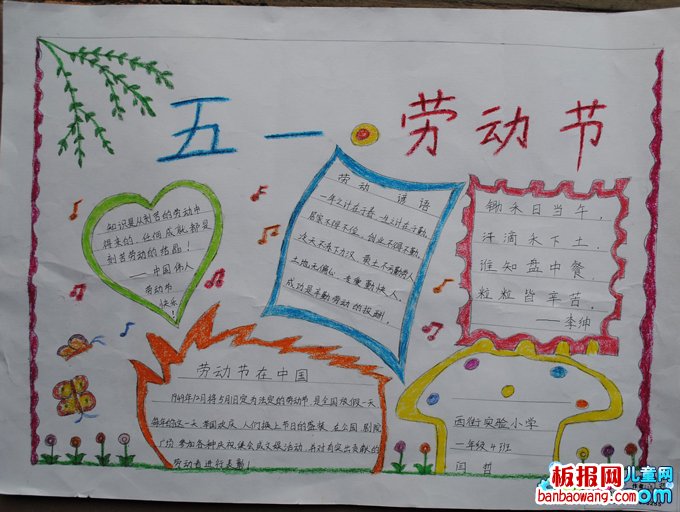 五一·劳动节
知识是从刻苦的劳动中
得来的,任何成就都是
刻苦劳动的结晶!
——中国伟人
劳动节
快乐!
劳动 谚语
一年之计在于春,一生之计在于勤。
居家不得不俭,创业不得不勤。
成功是辛勤劳动的报酬。
锄禾日当午,
汗滴禾下土。
谁知盘中餐
粒粒皆辛苦。
——李绅
劳动节在中国
1949年12月将5月1日定为法定的劳动节,是全国放假一天
每年的这一天,举国欢庆,人们换上节日的盛装,在公园、剧院
广场,参加各种庆祝集会或文娱活动,并对有突出贡献的
劳动者进行表彰!
西街实验小学
一年级4班
闫哲
板报网
儿童网
banbaowang.com